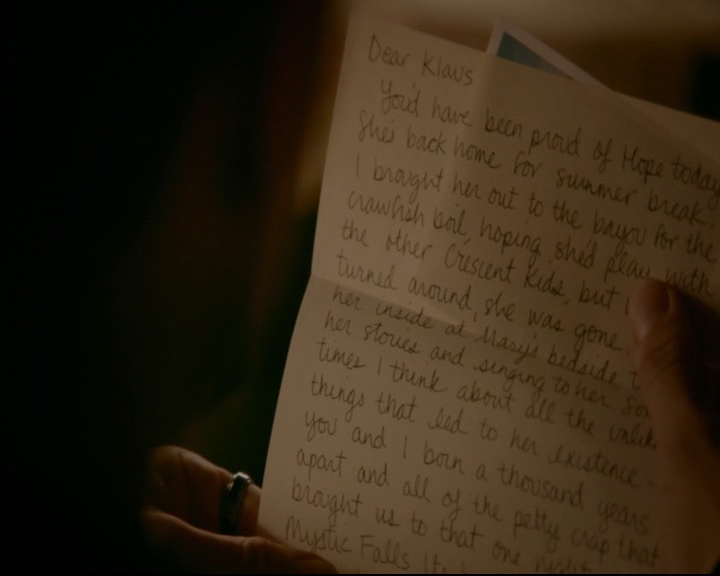 Dear Klaus
You'd have been proud of Hope today
She's back home for summer break.
I brought her out to the bayou for the
crawfish boil, hoping she'd play with
the other Crescent kids, but
turned around, she was gone.
her inside at Mary's bedside,
her stories and singing to her
times I think about all the
things that led to her existence -
you and I born a thousand years
apart and all of the petty crap that
brought us to that one night
Mystic Falls